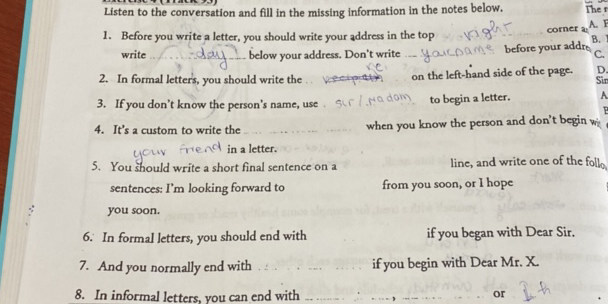 Listen to the conversation and fill in the missing information in the notes below.
1. Before you write a letter, you should write your address in the top right corner a
write day below your address. Don't write your name before your addre
2. In formal letters, you should write the on the left-hand side of the page.
3. If you don't know the person's name, use sir / Madam to begin a letter.
4. It's a custom to write the when you know the person and don't begin wi
your friend in a letter.
5. You should write a short final sentence on a line, and write one of the follo
sentences: I'm looking forward to from you soon, or I hope
you soon.
6. In formal letters, you should end with if you began with Dear Sir.
7. And you normally end with if you begin with Dear Mr. X.
8. In informal letters, you can end with , or
The r
A. F
B.
C.
D.
Sin
A